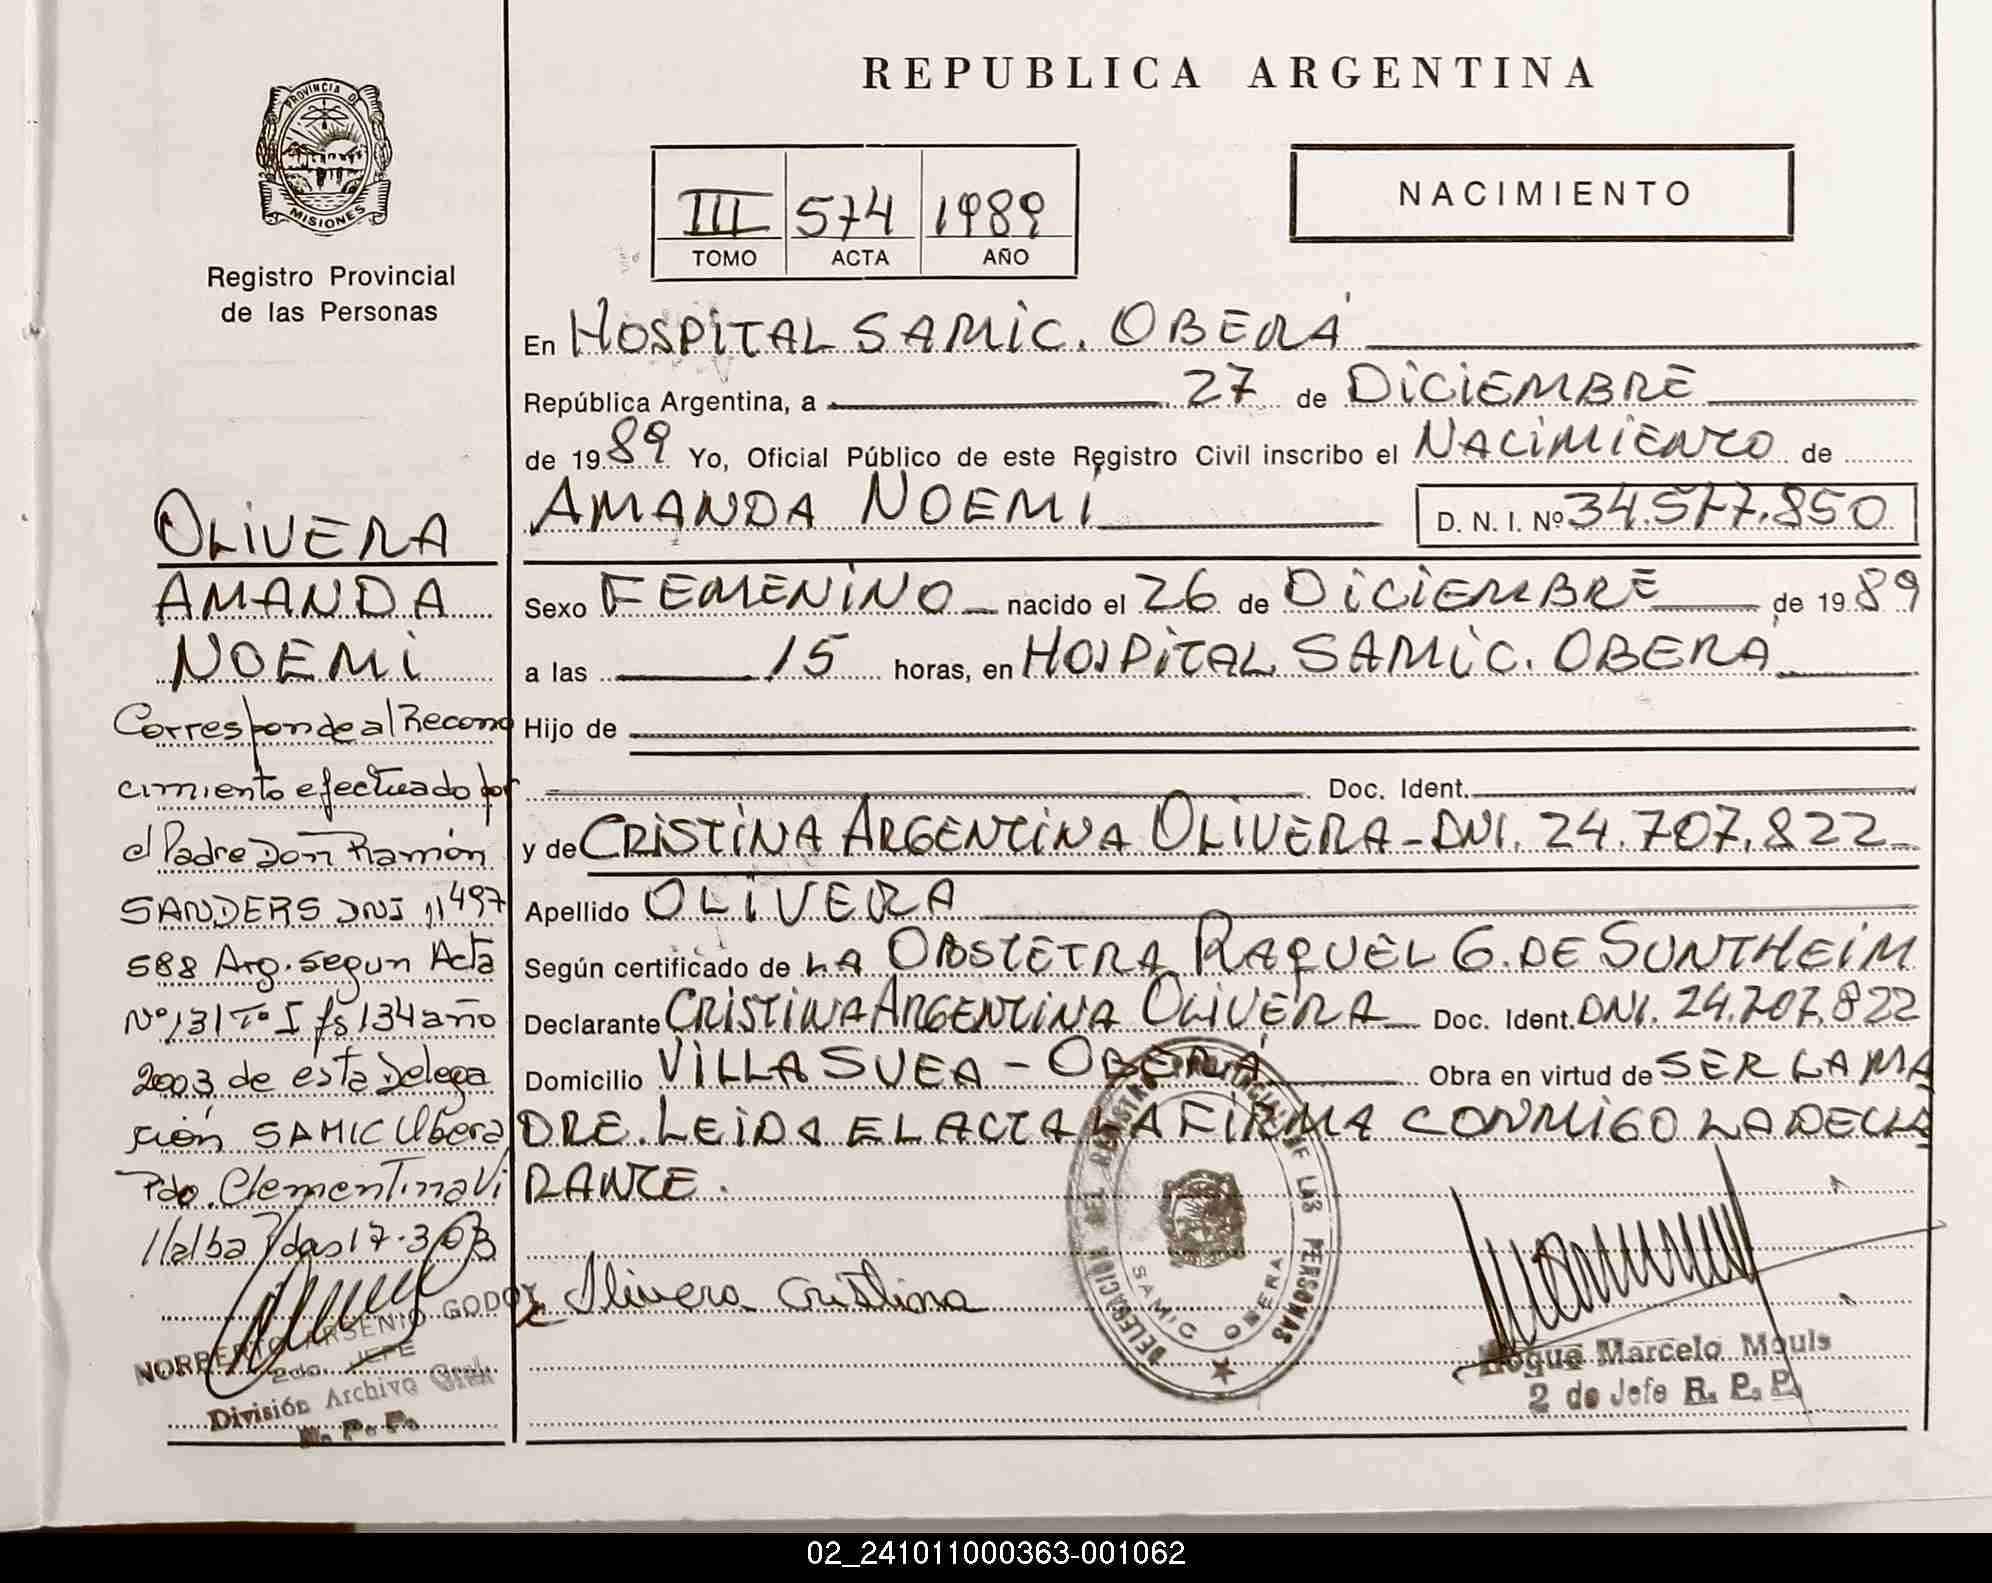 REPUBLICA ARGENTINA
PROVINCIA DE
MISIONES
Registro Provincial
de las Personas
III 574 1989
TOMO ACTA AÑO
NACIMIENTO
En HOSPITAL SAMIC. OBERÁ
República Argentina, a 27 de DICIEMBRE
de 1989 Yo, Oficial Público de este Registro Civil inscribo el NACIMIENTO de
AMANDA NOEMÍ D. N. I. Nº 34.577.850
Sexo FEMENINO nacido el 26 de DICIEMBRE de 1989
a las 15 horas, en HOSPITAL SAMIC. OBERÁ
Hijo de
Doc. Ident.
y de CRISTINA ARGENTINA OLIVERA - DNI. 24.707.822
Apellido OLIVERA
Según certificado de LA OBSTETRA RAQUEL G. DE SUNTHEIM
Declarante CRISTINA ARGENTINA OLIVERA Doc. Ident. DNI. 24.707.822
Domicilio VILLA SUEA - OBERÁ Obra en virtud de SER LA MA
DRE. LEIDA EL ACTA LA FIRMA CONMIGO LA DECLA
RANTE.
Olivera Cristina
DELEGACION DEL REGISTRO PROVINCIAL DE LAS PERSONAS
SAMIC OBERA
Roque Marcelo Mouls
2 do Jefe R. P. P.
OLIVERA
AMANDA
NOEMI
Corresponde al Recono
cimiento efectuado por
el Padre Don Ramón
SANDERS DNI 11497
588 Arg. segun Acta
Nº 131 Tº I fs 134 año
2003 de esta Delega
ción SAMIC Obera
Pdo. Clementina Vi
llalba Pdas 17-3-03
NORBERTO ARSENIO GODOY
2do JEFE
División Archivo Gral.
R. P. P.
02_241011000363-001062